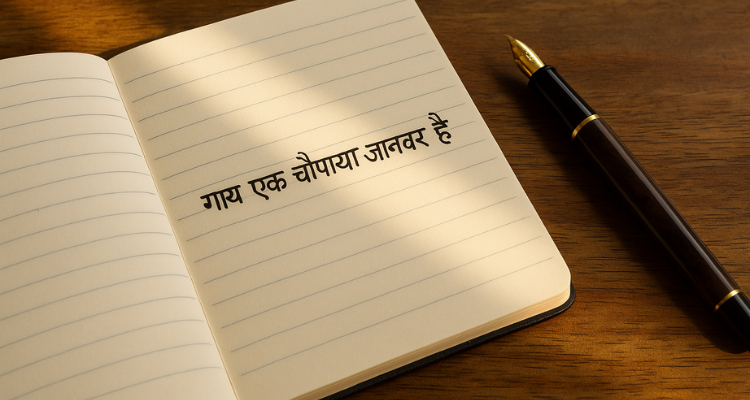 गाय एक चौपाया जानवर है